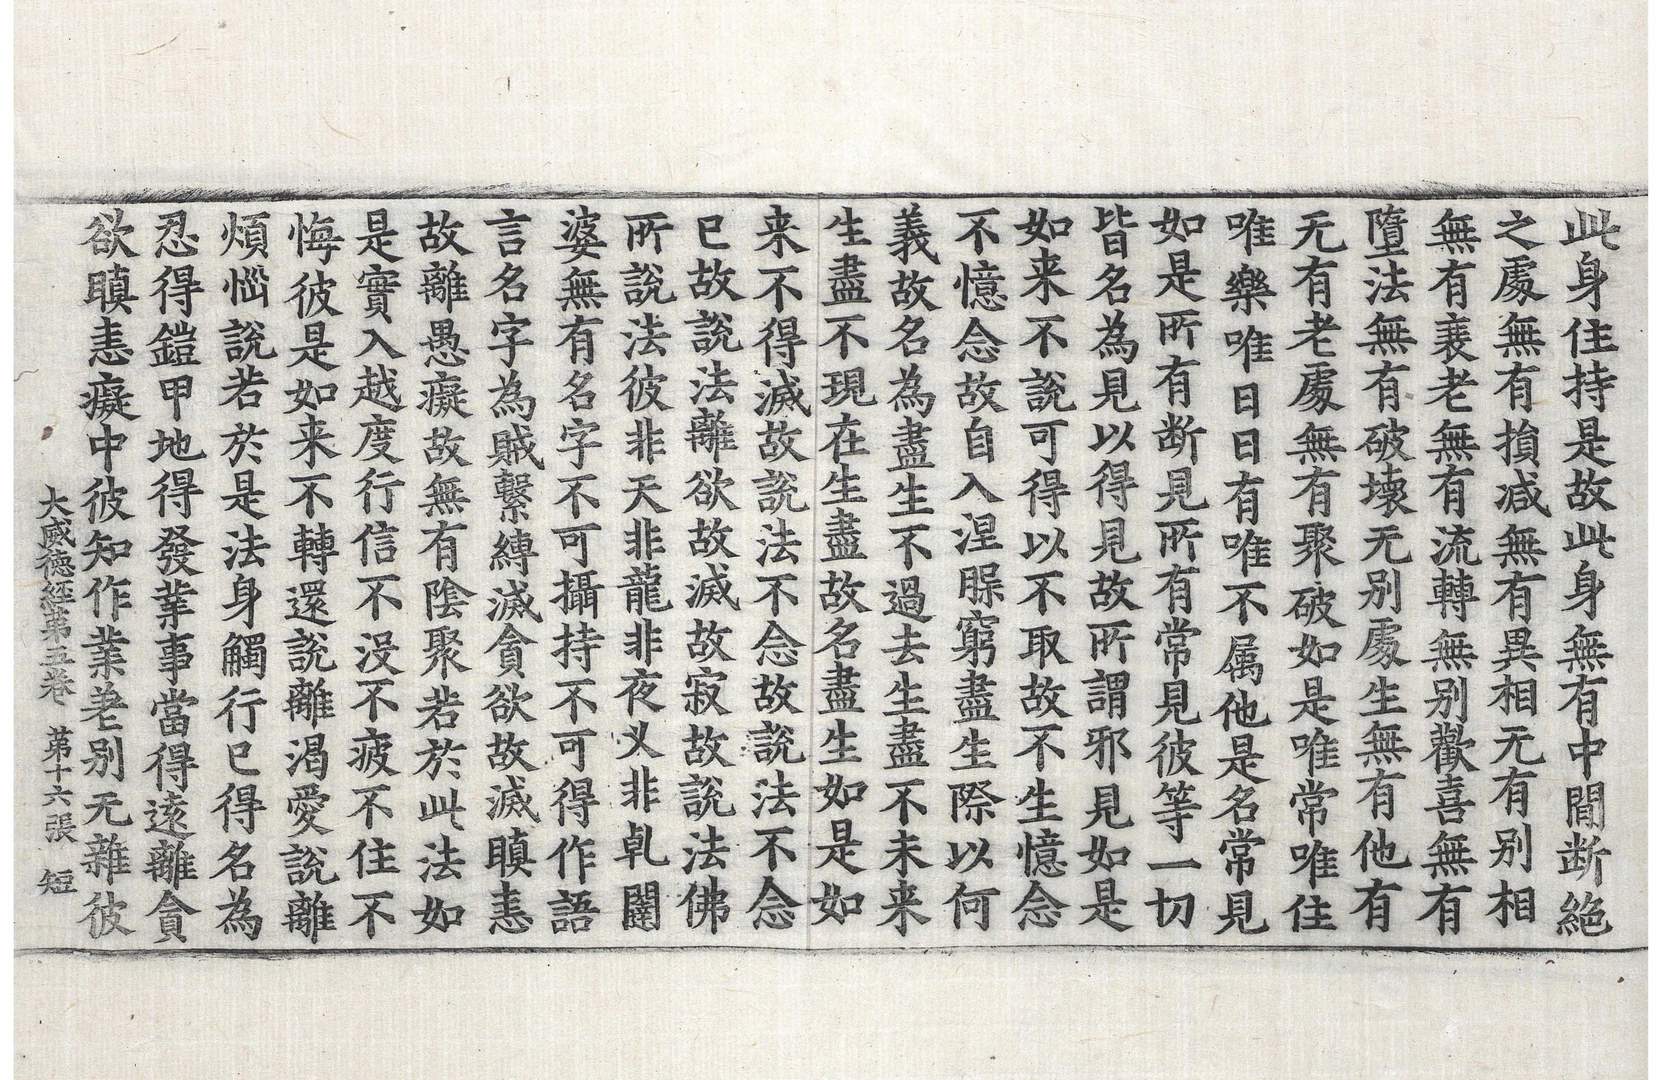 此身住持是故此身無有中間断絶
之處無有損减無有異相无有别相
無有衰老無有流轉無别歡喜無有
墮法無有破壞无别處生無有他有
无有老處無有聚破如是唯常唯住
唯樂唯日日有唯不属他是名常見
如是所有断見所有常見彼等一切
皆名為見以得見故所謂邪見如是
如来不說可得以不取故不生憶念
不憶念故自入涅脲窮盡生際以何
義故名為盡生不過去生盡不未来
生盡不現在生盡故名盡生如是如
来不得滅故說法不念故說法不念
已故說法離欲故滅故寂故說法佛
所說法彼非天非龍非夜义非乹闥
婆無有名字不可攝持不可得作語
言名字為賊繫縛滅貪欲故滅瞋恚
故離愚癡故無有陰聚若於此法如
是實入越度行信不没不疲不住不
悔彼是如来不轉還說離渴愛說離
煩惱說若於是法身觸行已得名為
忍得鎧甲地得發業事當得遠離貪
欲瞋恚癡中彼知作業差别无雜彼
大威德經第五卷 第十六張 短